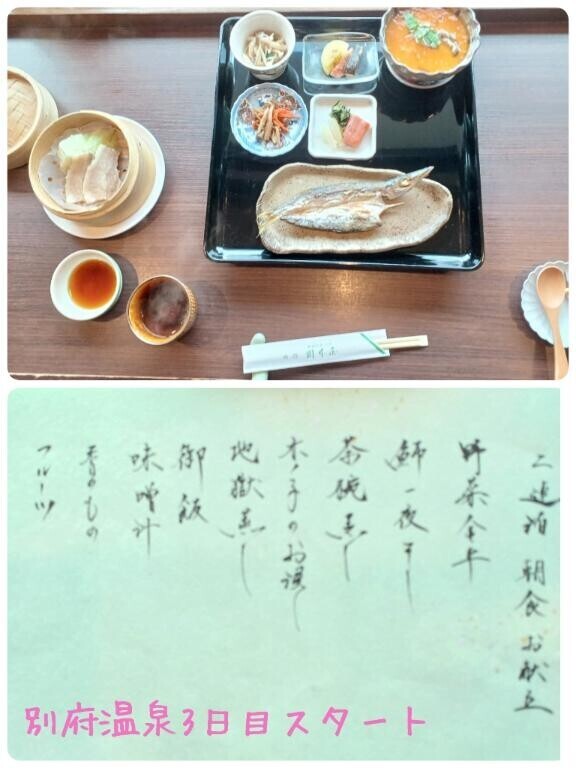 二連泊 朝食 お献立
野菜金平
一夜干し
茶碗蒸し
木ノ子のお浸し
地獄蒸し
御飯
味噌汁
香のもの
フルーツ
別府温泉3日目スタート